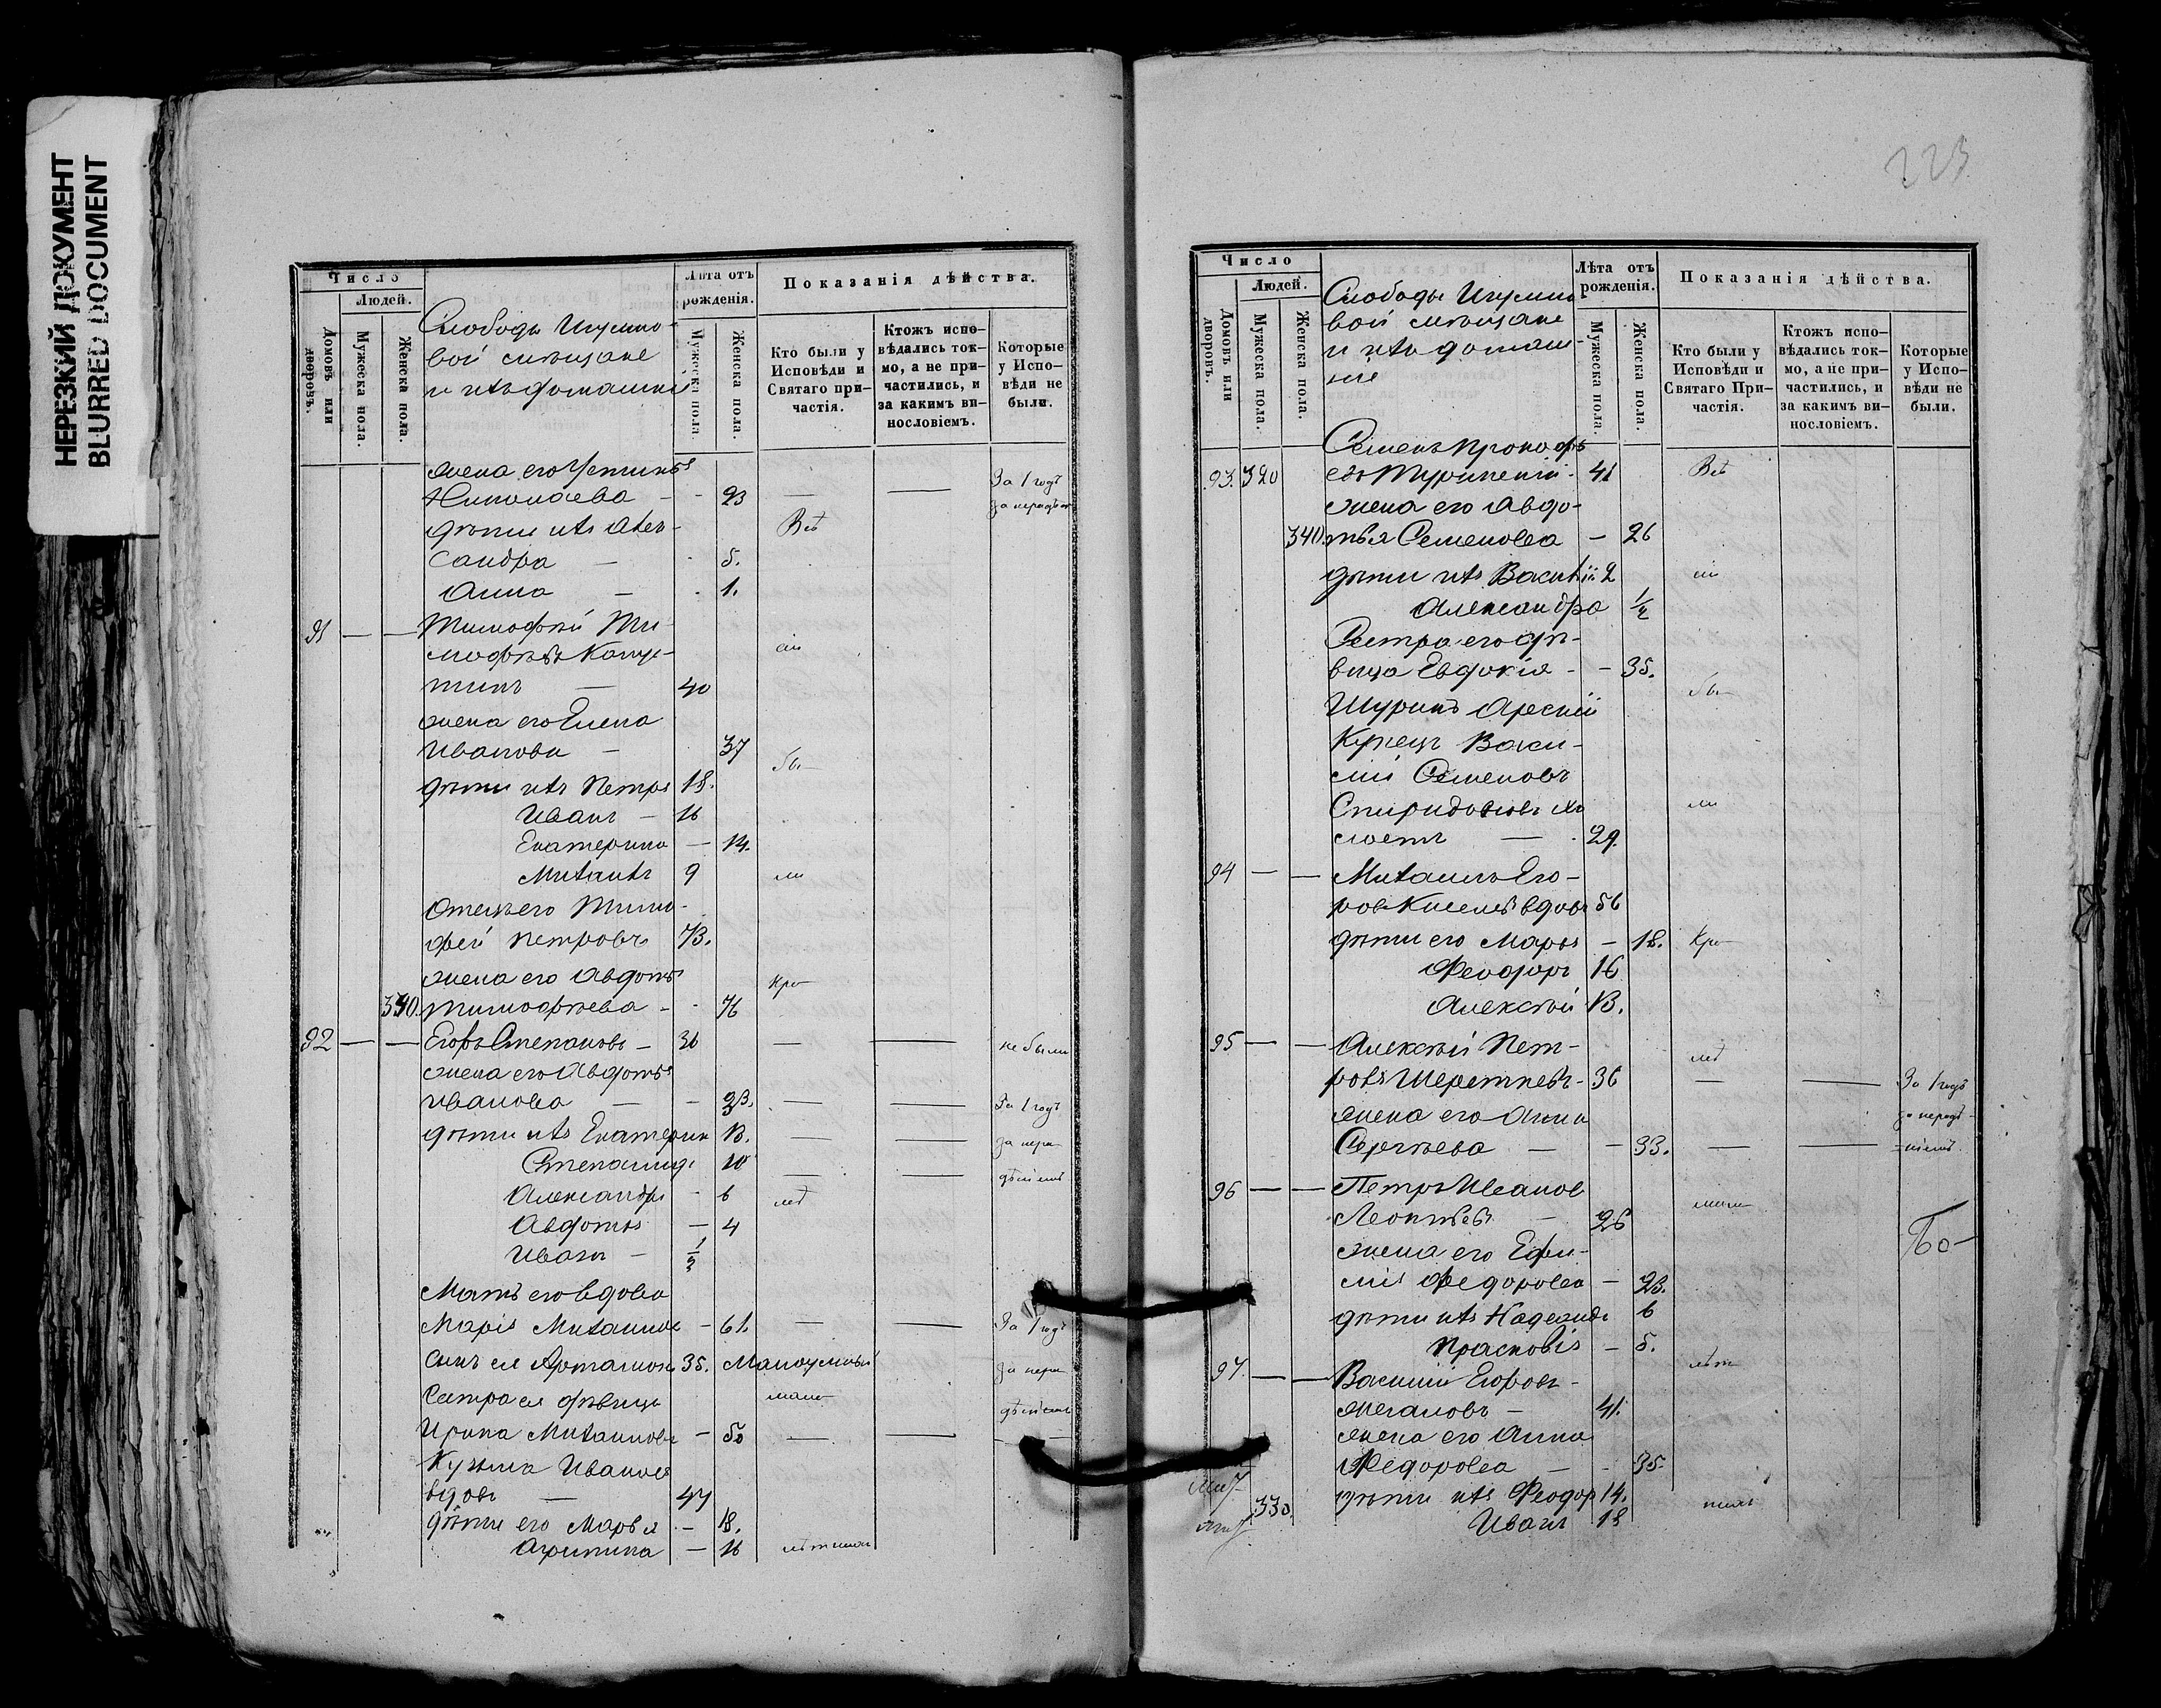 НЕРЕЗКИЙ ДОКУМЕНТ
BLURRED DOCUMENT
Число
Людей.
Домовъ или дворовъ.
Мужеска пола.
Женска пола.
Слободы Игумно-
вой мѣщане
и ихъ домашніе
Лѣта отъ
рожденія.
Мужеска пола
Женска пола.
Показанія дѣйства.
Кто были у
Исповѣди и
Святаго при-
частія.
Ктожъ испо-
вѣдались ток-
мо, а не при-
частились, и
за какимъ ви-
нословіемъ.
Которые
у Испо-
вѣди не
были.
жена его Устинья
Николаева - - 23 — — За 1 годъ
дѣти ихъ Алек- Всѣ
сандра — - 5.
Анна — - 1.
91 — — Тимофей Ти-
мофѣевъ Капу-
тинъ — 40
жена его Елена
Иванова — 37
дѣти ихъ Петръ 18.
Иванъ — 16
Екатерина — 14.
Михаилъ 9
Отецъ его Тимо-
фей Петровъ 73.
жена его Авдотья
340. Тимофѣева - - 76
92 — — Егоръ Степановъ — 36 — — не были
жена его Авдотья
Иванова — - 33. — — За 1 годъ
дѣти ихъ Екатерина 13. — —
Степанида 10 — —
Александра - 6
Авдотья — 4
Иванъ — 1/2
Мать его вдова
Марія Михайлова - 61. — — За 1 годъ
Сынъ ея Артамонъ 35. Малоумный
Сестра ея дѣвица
Ирина Михайлова - 50 — — —
Кузьма Ивановъ
вдовъ — 47
дѣти его Марья — 18.
Агрипина — 16
223
Число
Людей.
Домовъ или дворовъ.
Мужеска пола.
Женска пола.
Слободы Игумно
вой мѣщане
и ихъ домаш-
ніе
Лѣта отъ
рожденія.
Мужеска пола.
Женска пола.
Показанія дѣйства.
Кто были у
Исповѣди и
Святаго При-
частія.
Ктожъ испо-
вѣдались ток-
мо, а не при-
частились, и
за какимъ ви-
нословіемъ.
Которые
у Испо-
вѣди не
были.
Семенъ Прокофь
93. 320 41 Всѣ
жена его Авдо-
340. тья Семенова — 26
дѣти ихъ Василій 2
Александра 1/2
Сестра его дѣ-
вица Евдокія - - 35.
Шуринъ
Васи-
лій Семеновъ
Спиридоновъ хо
лостъ — 29.
94 — — Михаилъ Его-
ровъ Киселевъ вдовъ 56
дѣти его Марья — 18.
Феодоръ 16
Алексѣй 13.
95 — — Алексѣй Пет-
ровъ 36 — — За 1 годъ
жена его Анна
Сергѣева — — 33. — —
96 — — Петръ Иванов
Леонтьевъ — 26
жена его Ефи-
мія Федорова — 23.
дѣти ихъ Надежда 6
Прасковія — 5.
97. — — Василій Егоровъ
Жегаловъ — 41.
жена его Анна
Федорова — - 35.
330. дѣти ихъ Феодоръ 14.
Иванъ 13